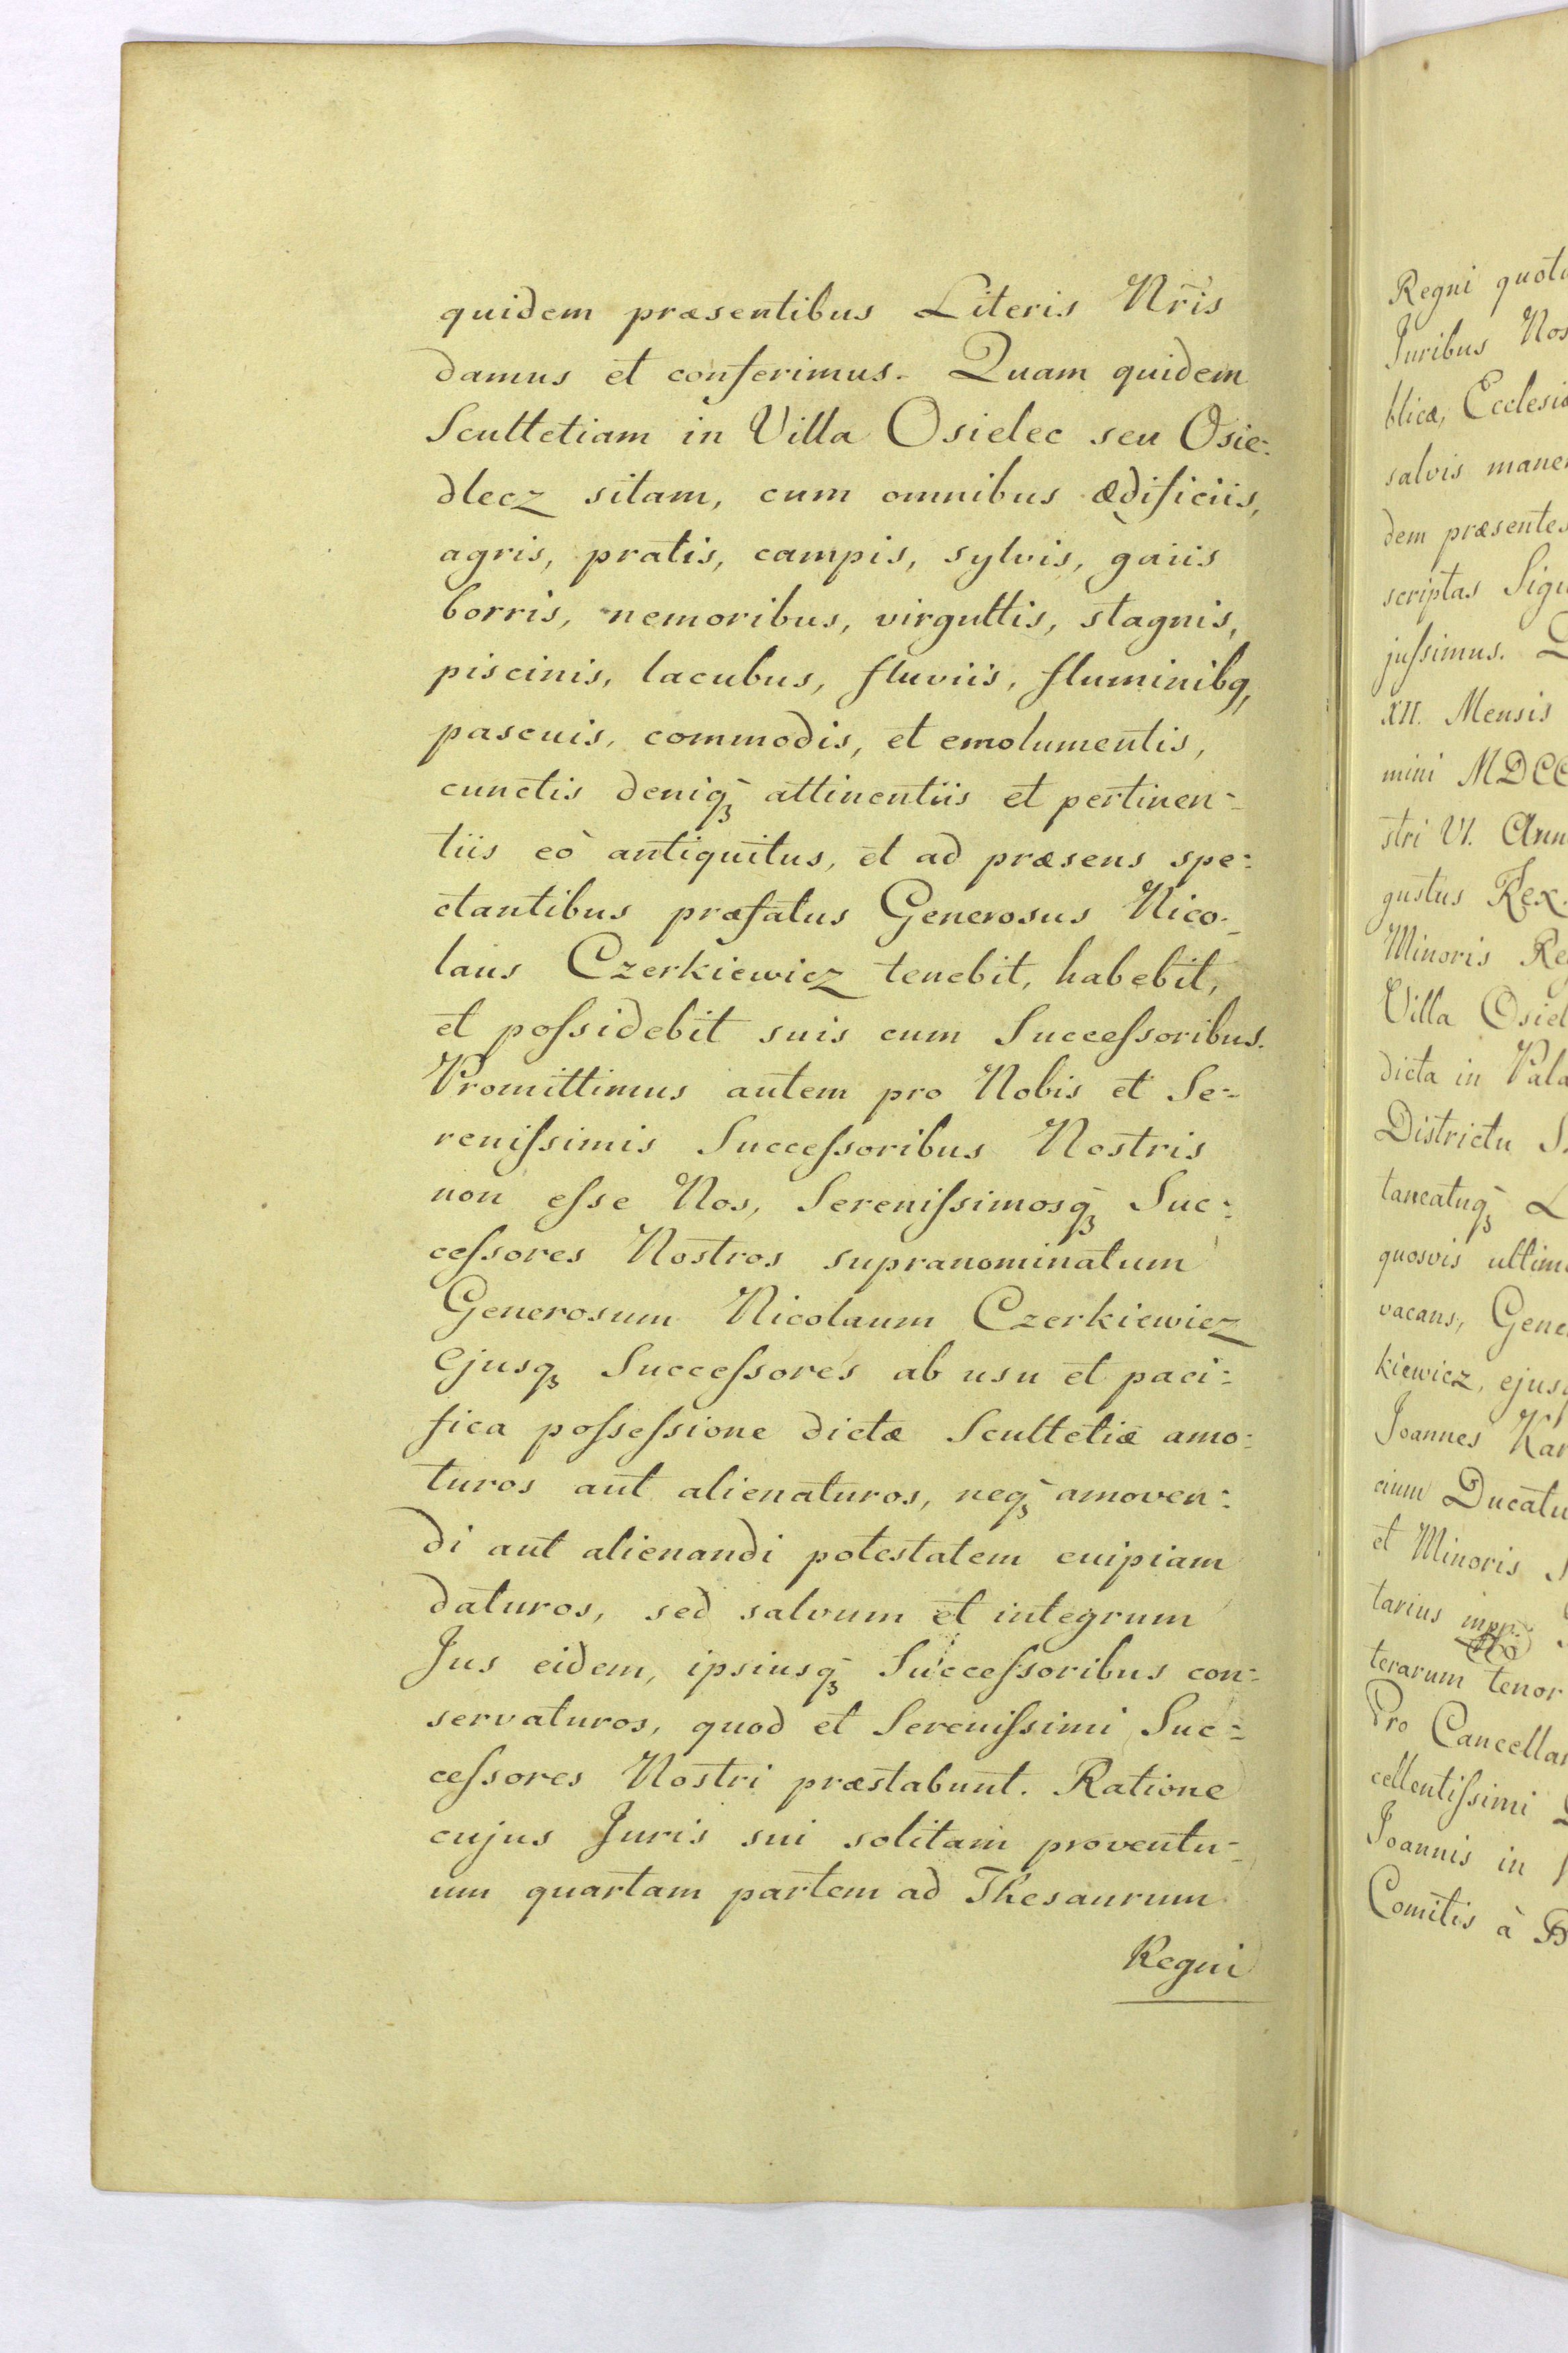 quidem præsentibus Literis Nr̃is
damus et conferimus. Quam quidem
Scultetiam in Villa Osielec seu Osie-
dlecz sitam, cum omnibus ædificiis,
agris, pratis, campis, sylvis, gaiis
borris, nemoribus, virgultis, stagnis,
piscinis, lacubus, fluviis, fluminibq,
pascuis, commodis, et emolumentis,
cunctis deniqꝫ attinentiis et pertinen-
tiis eò antiquitus, et ad præsens spe-
ctantibus præfatus Generosus Nico-
laus Czerkiewicz tenebit, habebit,
et poſsidebit suis cum Succeſsoribus.
Promittimus autem pro Nobis et Se-
reniſsimis Succeſsoribus Nostris
non eſse Nos, Sereniſsimosqꝫ Suc-
ceſsores Nostros supranominatum
Generosum Nicolaum Czerkiewicz
Ejusqꝫ Succeſsores ab usu et paci-
fica poſseſsione dictæ Scultetiæ amo-
turos aut alienaturos, neqꝫ amoven-
di aut alienandi potestatem cuipiam
daturos, sed salvum et integrum
Jus eidem, ipsiusqꝫ Succeſsoribus con-
servaturos, quod et Sereniſsimi Suc-
ceſsores Nostri præstabunt. Ratione
cujus Juris sui solitam proventu-
um quartam partem ad Thesaurum
Regni
Regni quota
Juribus Nos
blicæ, Ecclesiæ
salvis mane
dem præsentes
scriptas Sigi
juſsimus. D
XII. Mensis
mini MDCC
stri VI. Ann
gustus Rex.
Minoris Re
Villa Osiel
dicta in Pala
Districtu S
taneatuqꝫ L
quosvis ultim
vacans, Gene
kiewicz, ejus
Joannes Kar
cium Ducatu
et Minoris
tarius mpp.
terarum tenor
Pro Cancella
cellentiſsimi
Joannis in
Comitis à B